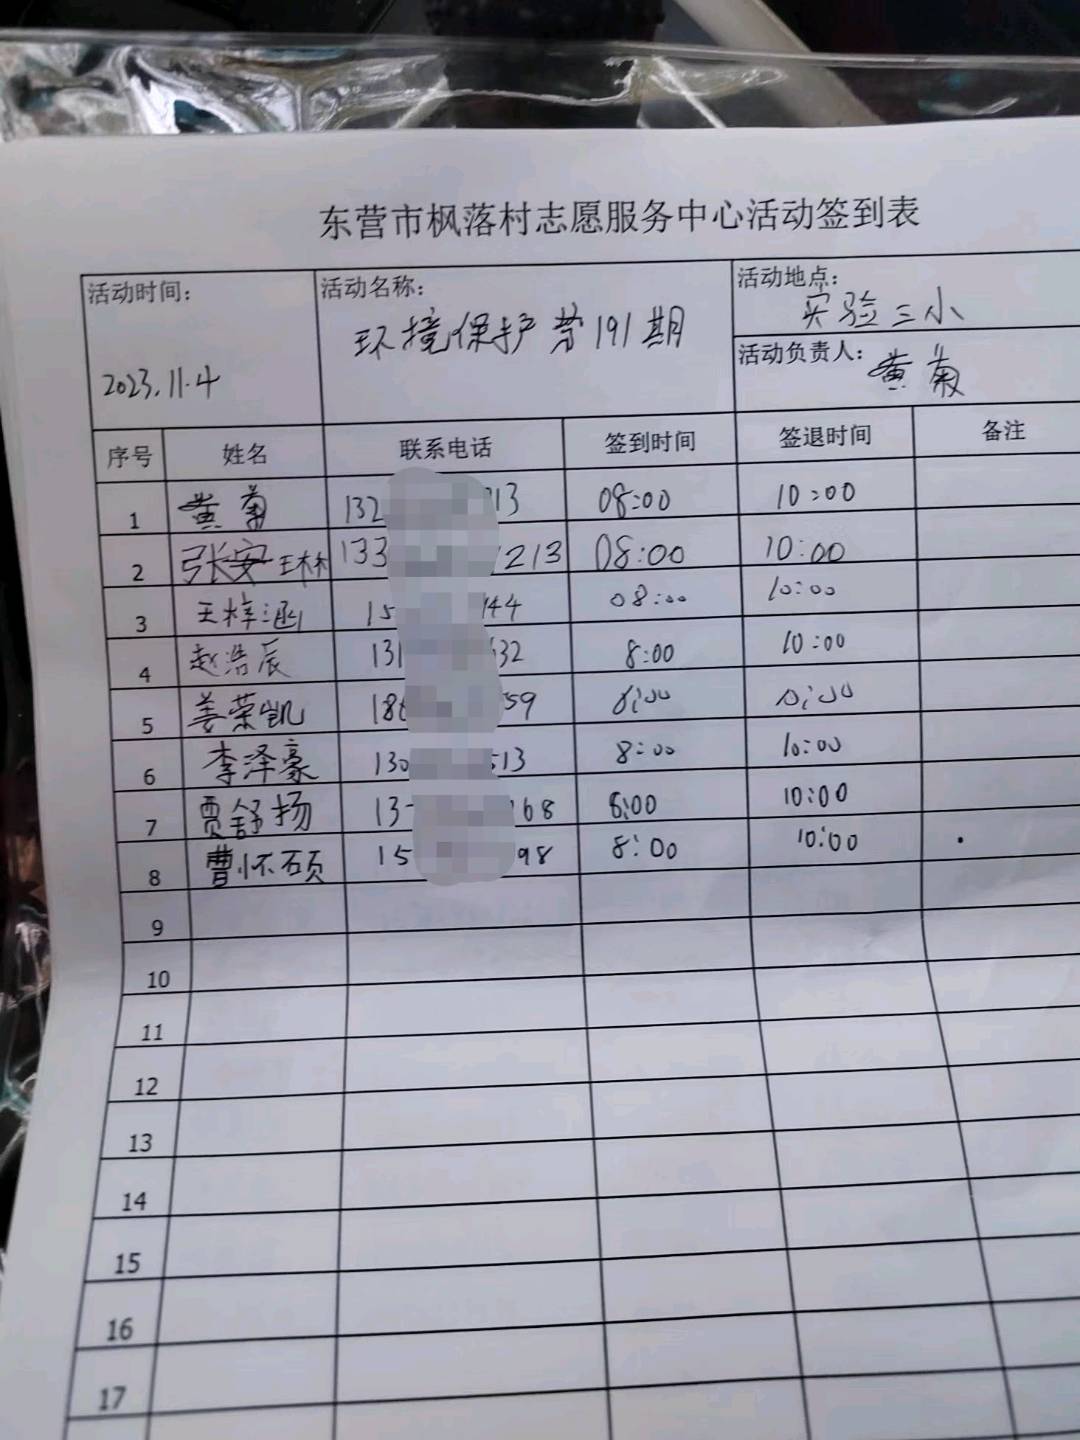 东营市枫落村志愿服务中心活动签到表
活动时间: 2023.11.4
活动名称: 环境保护第191期
活动地点: 实验三小
活动负责人: 黄菊
序号 姓名 联系电话 签到时间 签退时间 备注
1 黄菊 132 13 08:00 10:00
2 王林 133 1213 08:00 10:00
3 王梓涵 15 44 08:00 10:00
4 赵浩辰 131 32 8:00 10:00
5 姜荣凯 18 59 8:00 10:00
6 李泽豪 130 513 8:00 10:00
7 贾舒扬 13 168 8:00 10:00
8 曹怀硕 15 98 8:00 10:00
9
10
11
12
13
14
15
16
17